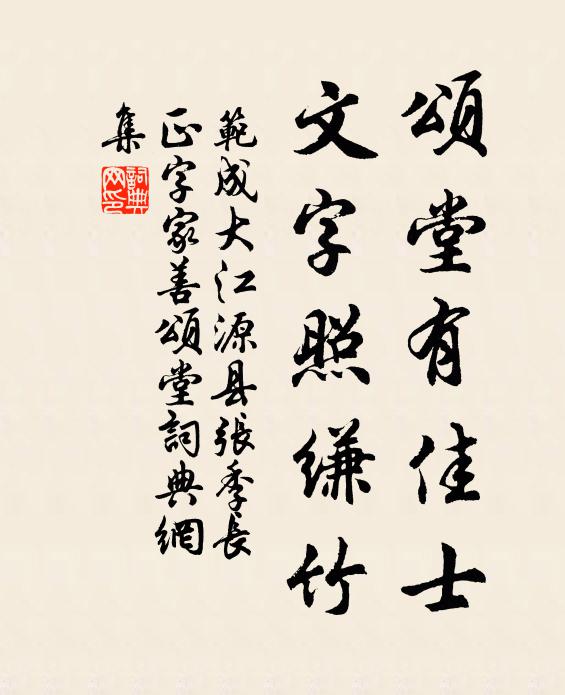 頌堂有佳士
文字照縑竹
範成大江源县張季長
正字家善頌堂詞典網
集
詞典
网印